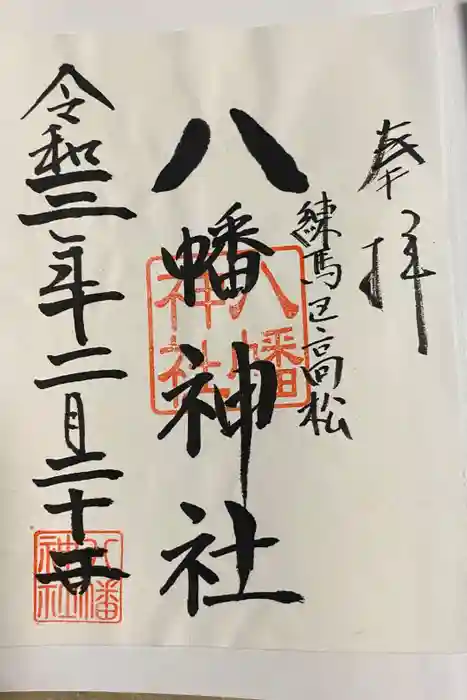 奉拝
練馬区高松
八幡神社
八幡
神社
令和三年二月二十
八幡
神社